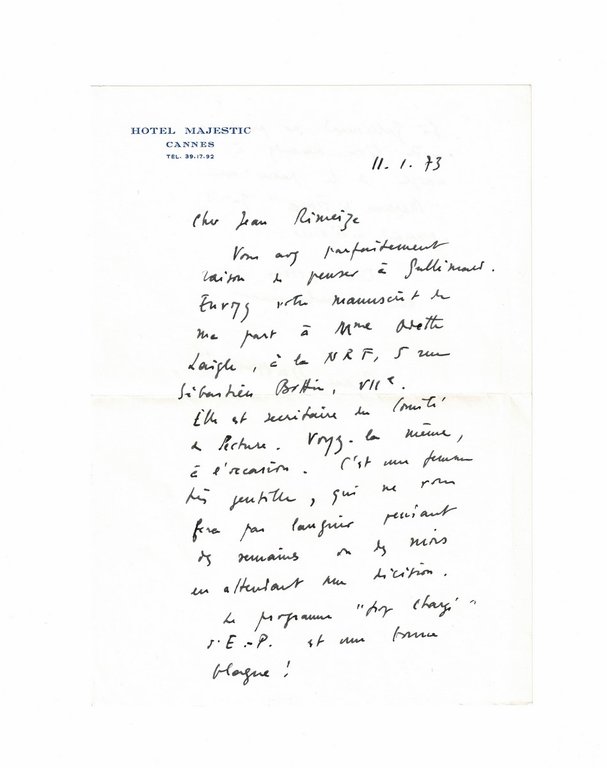 HOTEL MAJESTIC
CANNES
TEL. 39.17.92
11. 1. 73
Cher Jean Rimeize
Vous avez parfaitement
raison de penser à Gallimard.
Envoyez votre manuscrit de
ma part à Mme Odette
Laigle, à la NRF, 5 rue
Sébastien Bottin, VIIe.
Elle est secrétaire du Comité
de lecture. Voyez-la même,
à l'occasion. C'est une femme
très gentille, qui ne vous
fera pas languir pendant
des semaines ou des mois
en attendant une décision.
Le programme "trop chargé"
d'E.-P. est une bonne
blague !